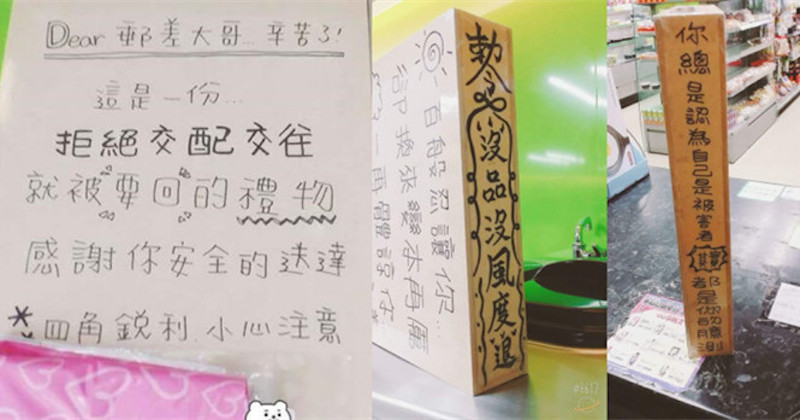 Dear 郵差大哥... 辛苦了!
這是一份...
拒絕交配交往
就被要回的禮物
感謝你安全的送達
* 四角銳利.小心注意
百般忍讓你...
卻換來變本再厲
一再體諒你
勅令 沒品沒風度退
你總是認為自己是被害者 其實 都是你